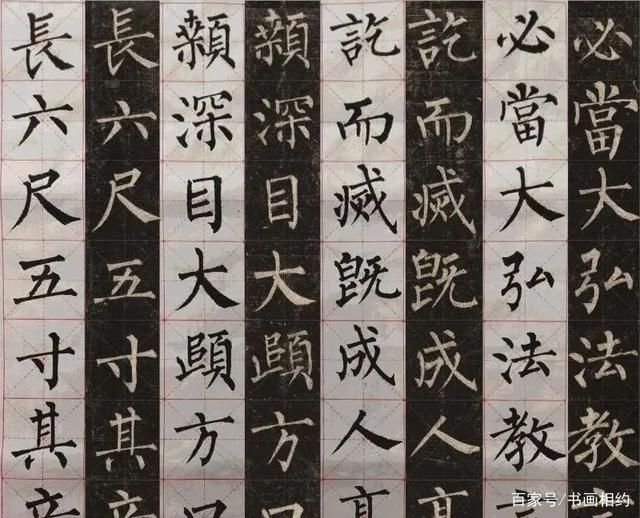 必當大弘法教
必當大弘法教
訖而滅旣成人
訖而滅旣成人
顙深目大頤方
顙深目大頤方
長六尺五寸其
長六尺五寸其
百家号/书画相约